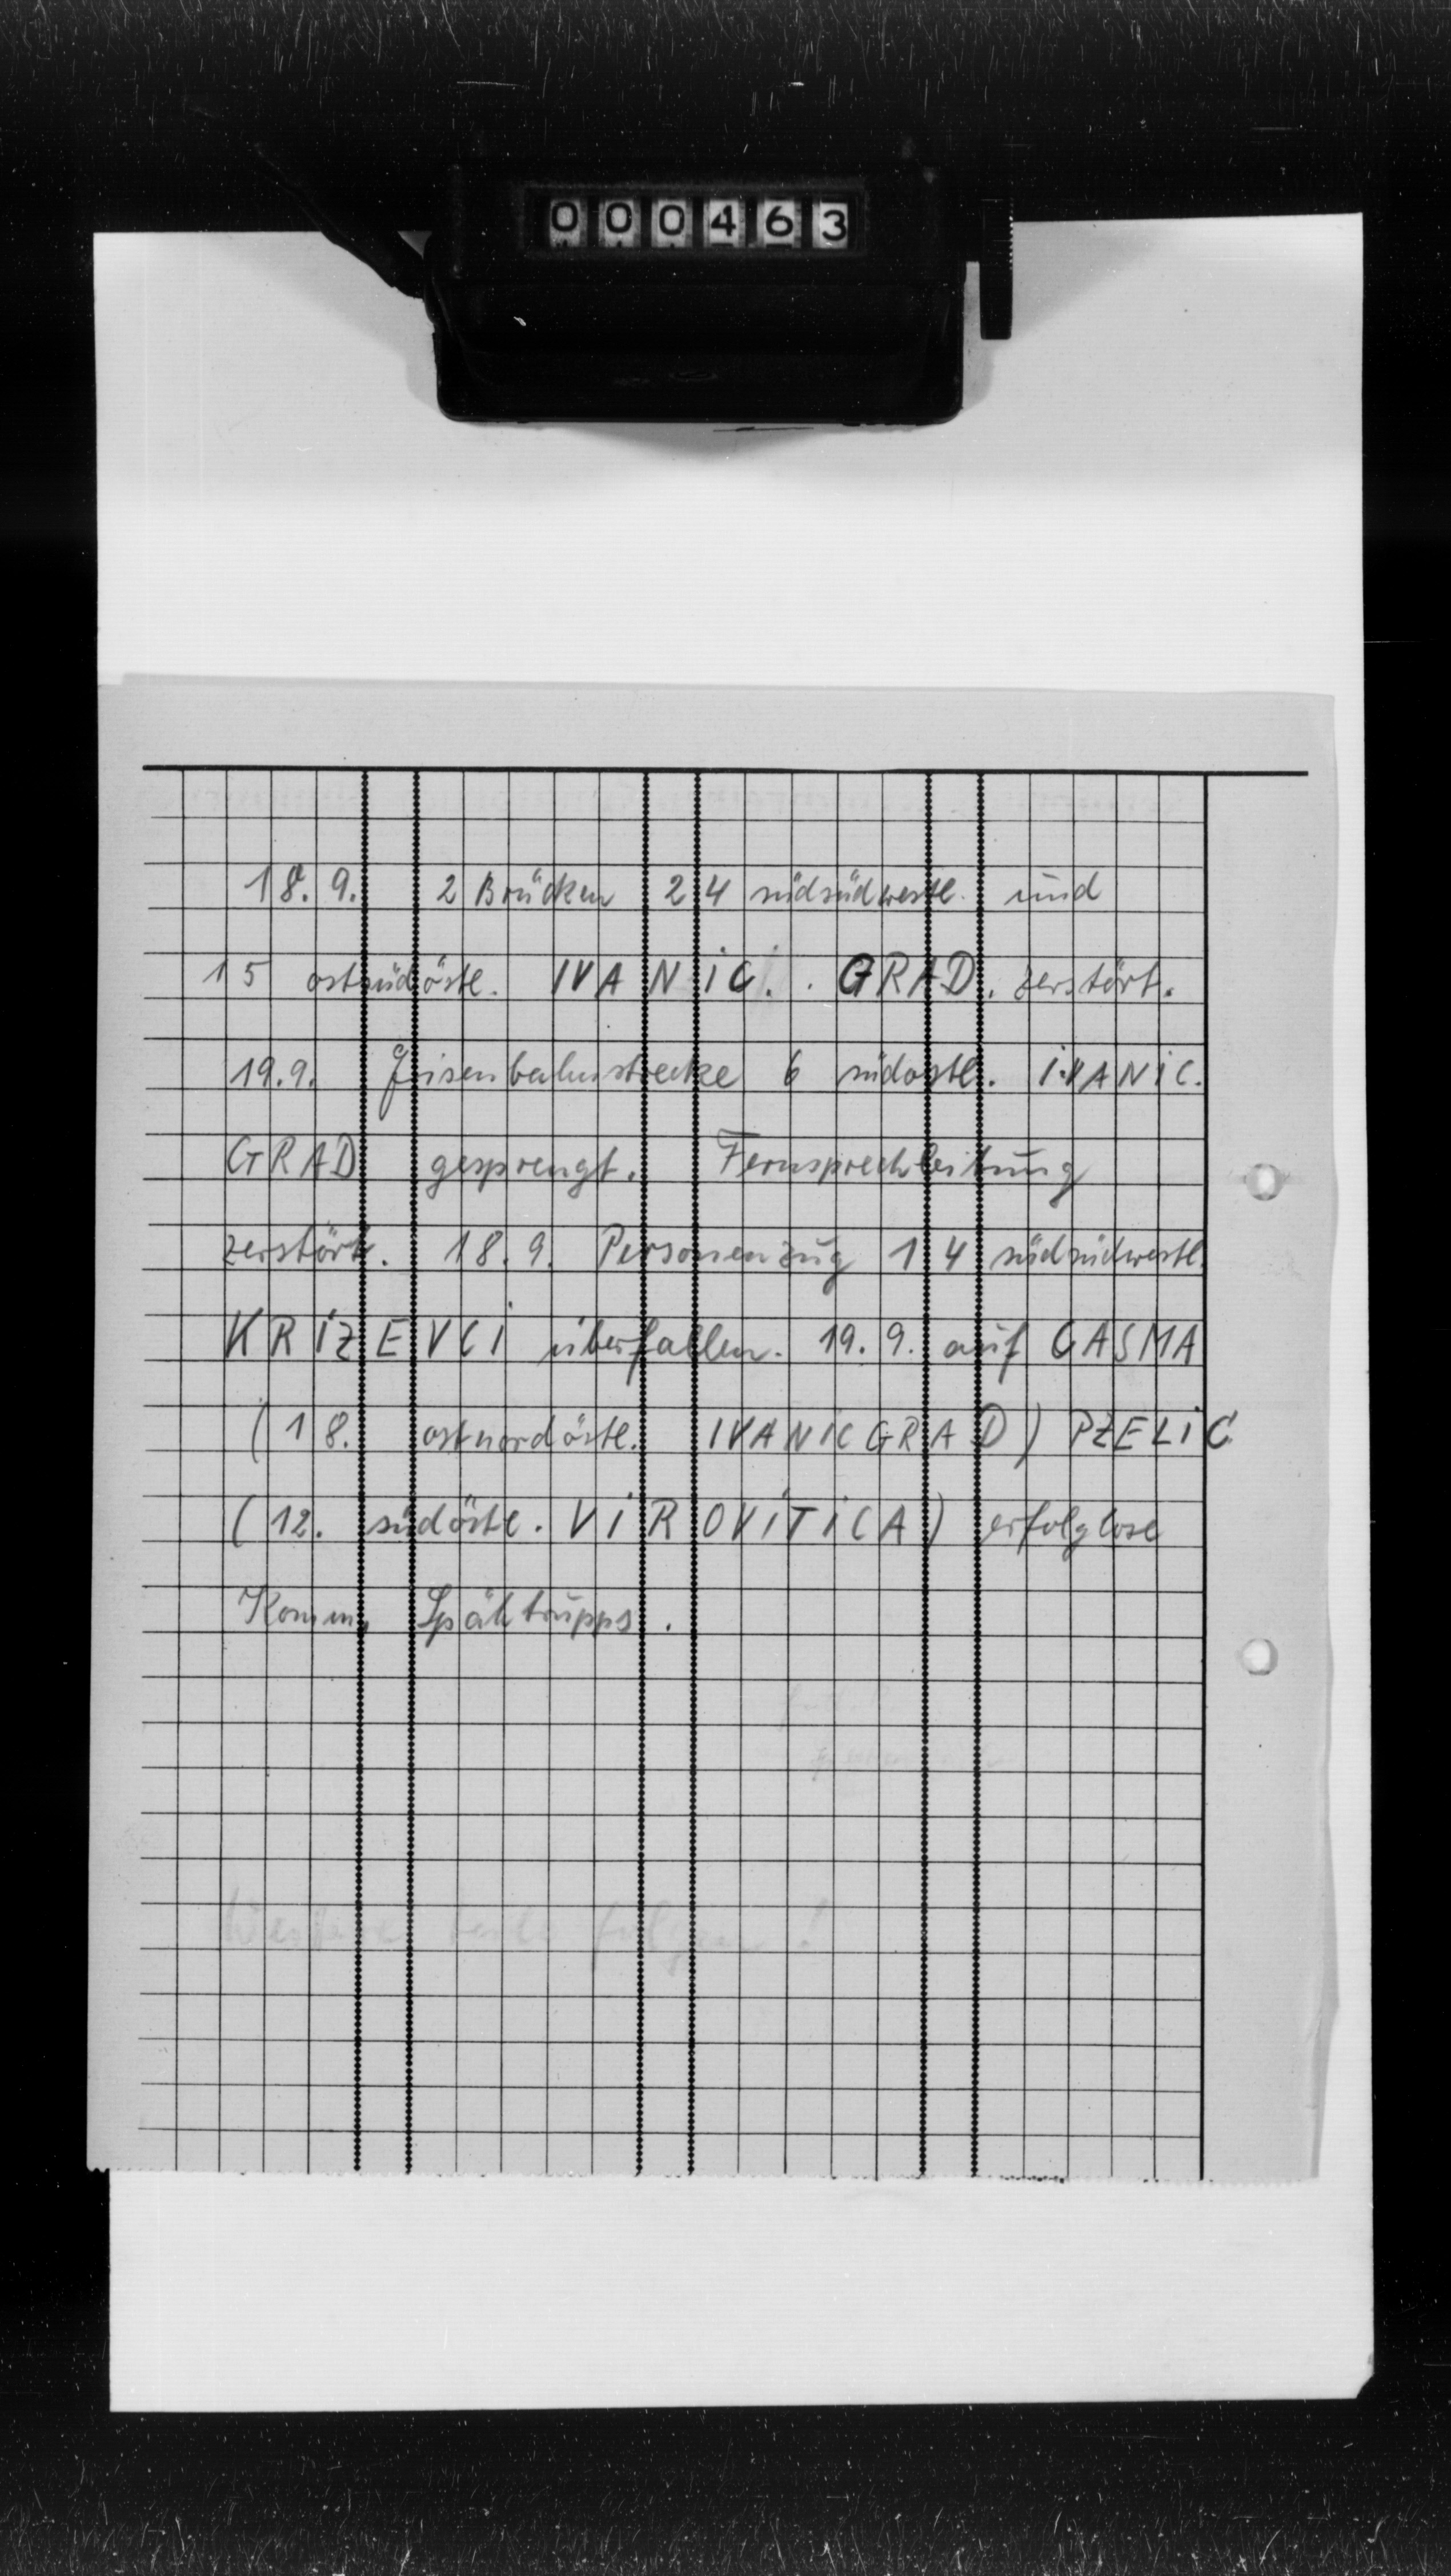 000463
18. 9. 2 Brücken 24 südsüdwestl. und
15 ostsüdöstl. IVANIC. . GRAD. zerstört.
19.9. Eisenbahnstrecke 6 südostl. IVANIC.
GRAD gesprengt. Fernsprechleitung
zerstört. 18.9. Personenzug 14 südsüdwestl.
KRIZEVCI überfallen. 19.9. auf CASMA
(18. ostnordöstl. IVANICGRAD) PZELIC
(12. südöstl. VIROVITICA) erfolglose
Komm. Spähtrupps.
Weitere Teile folgen!